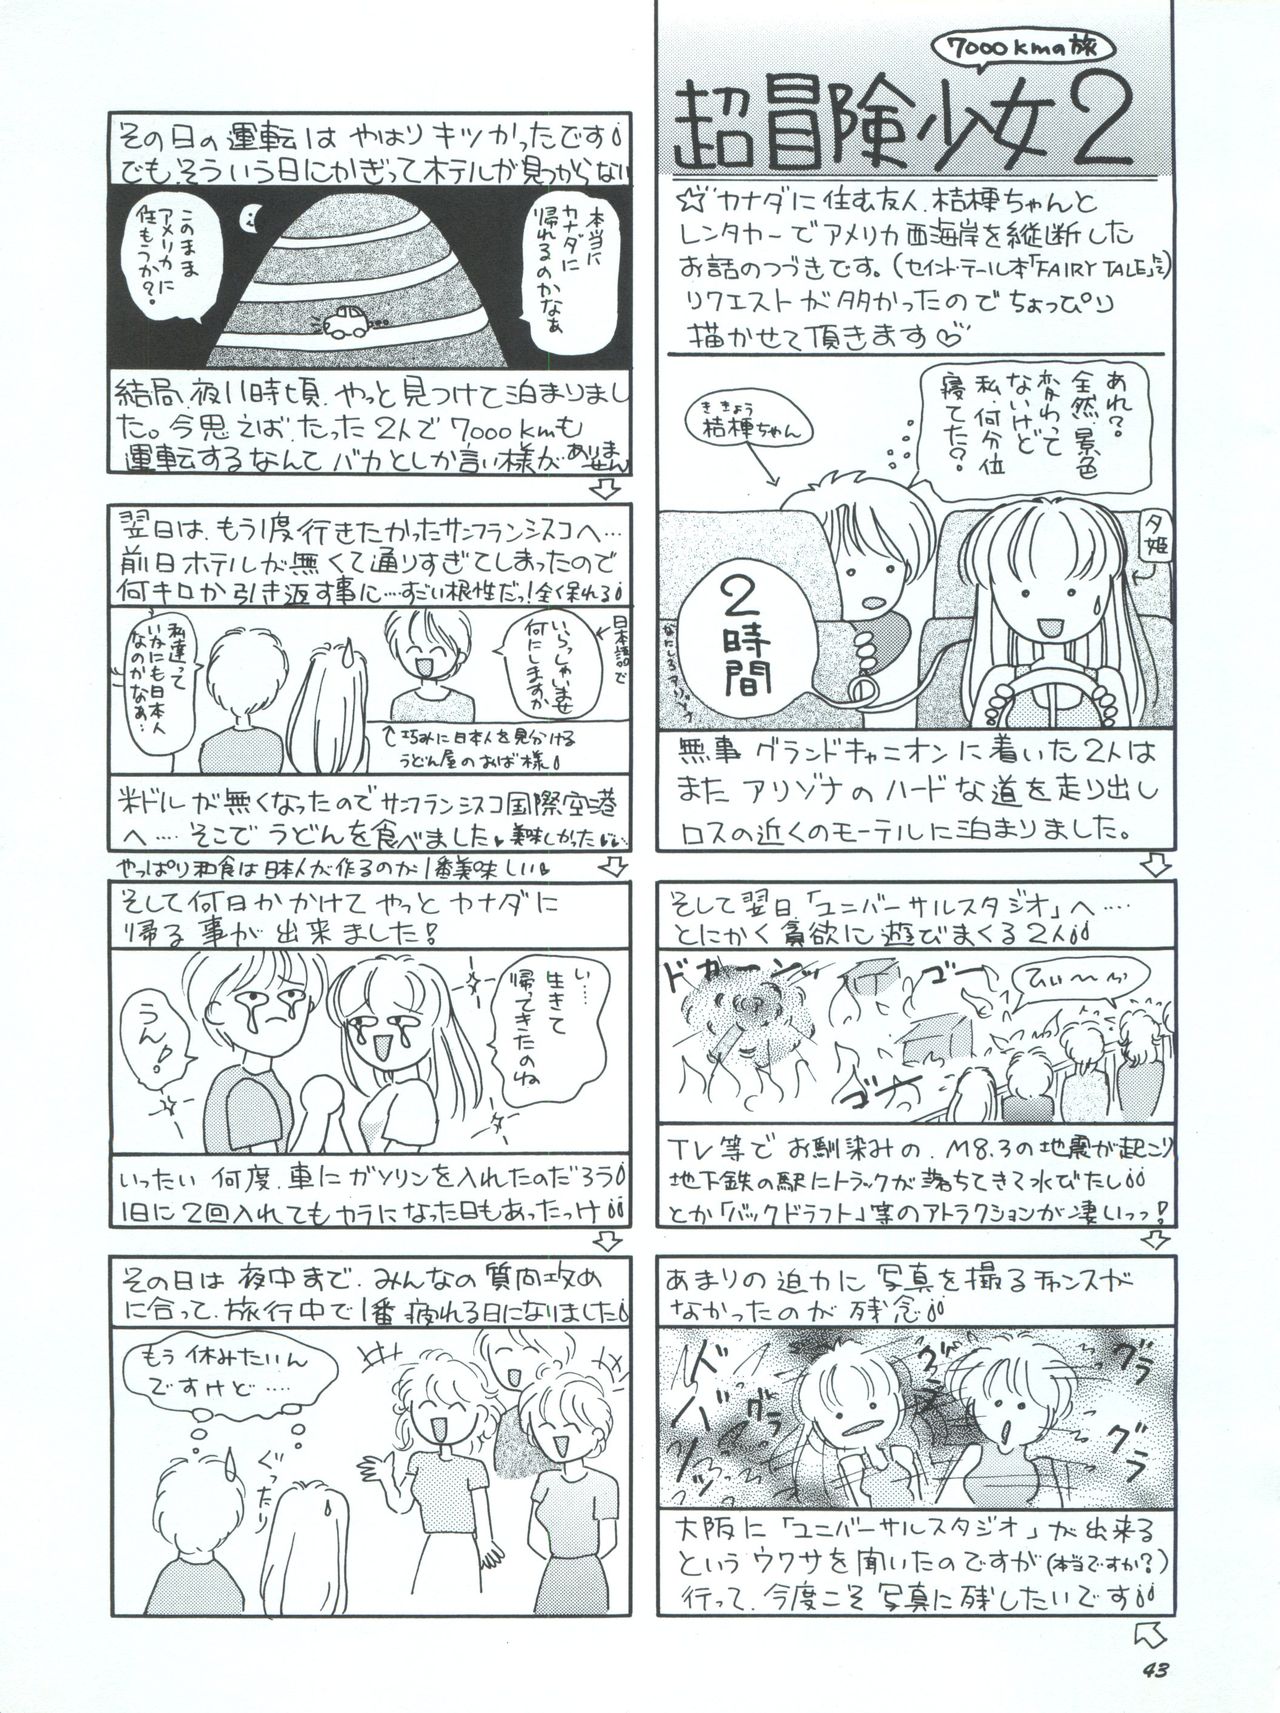 7000kmの旅
超冒険少女2
☆カナダに住む友人、桔梗ちゃんと
レンタカーでアメリカ西海岸を縦断した
お話のつづきです。(セイント・テール本「FAIRY TALE」にて)
リクエストが多かったのでちょっぴり
描かせて頂きます♡
あれ?
全然、景色
変わって
ないけど
私、何分位
寝てた?
ききょう
桔梗ちゃん
夕姫
2時間
なにしろアリゾナ
無事グランドキャニオンに着いた2人は
またアリゾナのハードな道を走り出し
ロスの近くのモーテルに泊まりました。
そして翌日「ユニバーサルスタジオ」へ‥‥
とにかく貪欲に遊びまくる2人!!
ドカーンッ
ゴー
ゴー
ひぃ〜〜っ
TV等でお馴染みの、M8.3の地震が起こり
地下鉄の駅にトラックが落ちてきて水びたし!!
とか「バックドラフト」等のアトラクションが凄いっっ!
あまりの迫力に写真を撮るチャンスが
なかったのが残念!!
ドババ
グラ
グラ
グラ
グラ
大阪に「ユニバーサルスタジオ」が出来る
というウワサを聞いたのですが(本当ですか?)
行って、今度こそ写真に残したいです!!
その日の運転はやはりキツかったです!
でも、そういう日にかぎってホテルが見つからない
本当に
カナダに
帰れるのかなぁ
このまま
アメリカに
住もうか?
結局、夜11時頃、やっと見つけて泊まりまし
た。今思えば、たった2人で7000kmも
運転するなんてバカとしか言い様がありません
翌日は、もう1度行きたかったサンフランシスコへ…
前日ホテルが無くて通りすぎてしまったので
何キロか引き返す事に…すごい根性だっ!全く呆れる!
日本語で
いらっしゃいませ
何にしますか
私達って
いかにも日本人
なのかなぁ…
↑巧みに日本人を見分ける
うどん屋のおば様!
米ドルが無くなったのでサンフランシスコ国際空港
へ‥‥そこでうどんを食べました♥美味しかった
やっぱり和食は日本人が作るのが1番美味しい♥
そして何日かかけてやっとカナダに
帰る事が出来ました!
い……
生きて
帰ってきたのね
うん!
いったい何度、車にガソリンを入れたのだろう!
1日に2回入れてもカラになった日もあったっけ!!
その日は夜中まで、みんなの質問攻め
に合って、旅行中で1番疲れる日になりました!
もう休みたいん
ですけど……
ぐったり
43